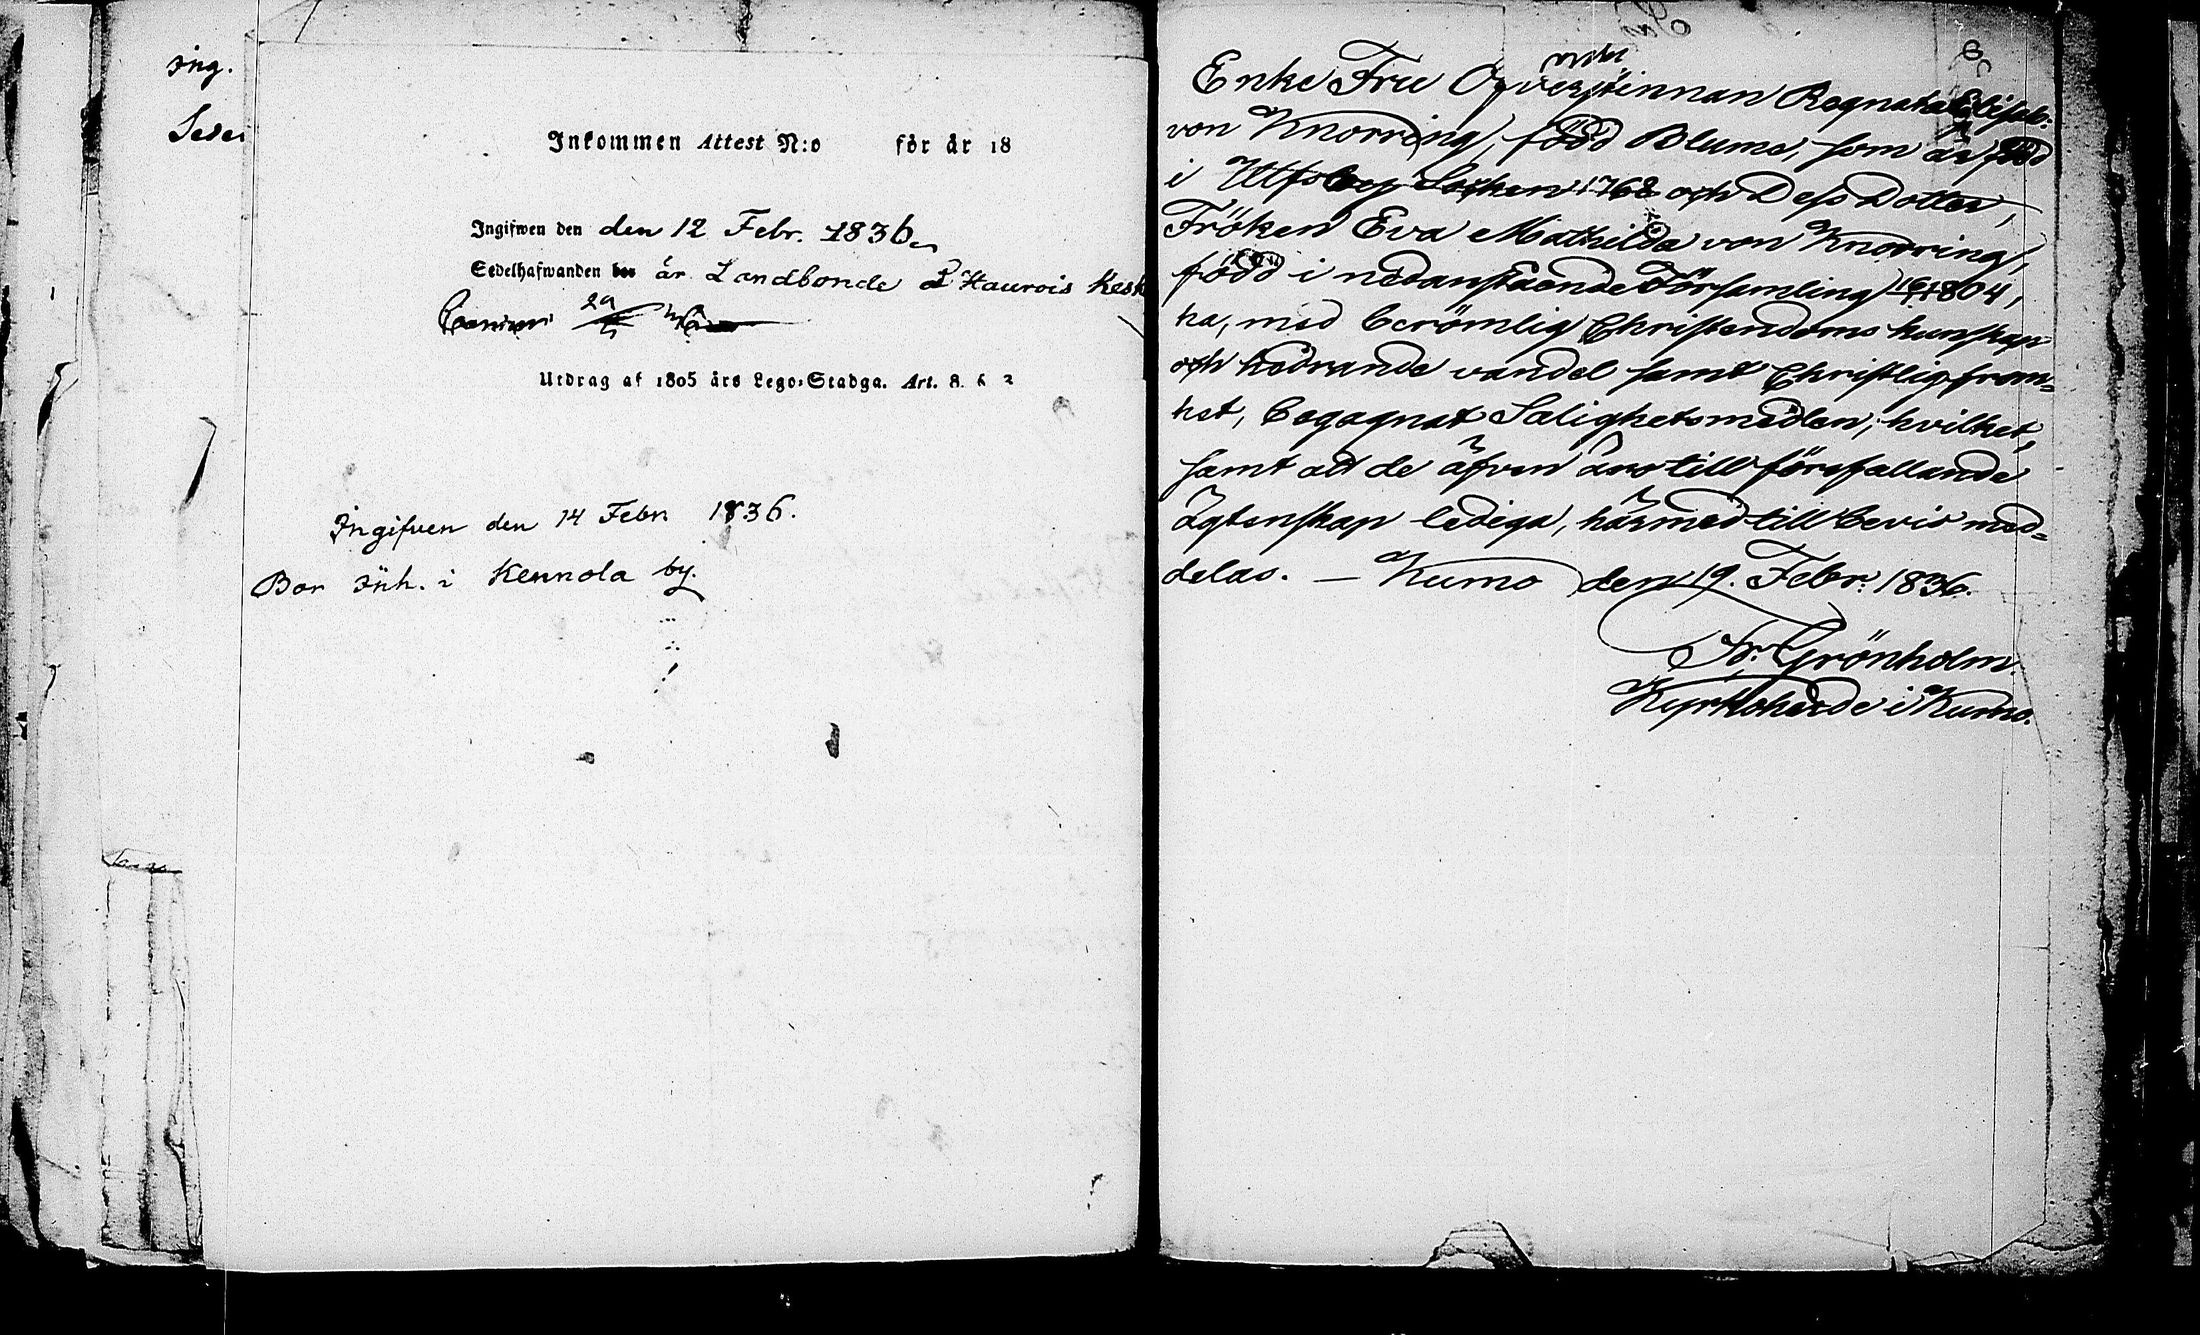 Ing.
Sede
Inkommen Attest N:o för år 18
Ingifwen den den 12 Febr. 1836
Sedelhafwanden bor är Landbonde å Haurois Kesk
Utdrag af 1805 års Lego-Stadga. Art. 8. §
Ingifven den 14 Febr 1836.
Bor inh. i Kennola by.
Enke Fru Öfverstinnan Regnata Elisab.
von Knorring, född Blume, som är född
i Ulfsby Socken 1768 och Dess Dotter,
Fröken Eva Mathilda von Knorring,
född i nedanstående Församling 1804,
ha, med berömlig Christendoms kunskap
och hedrande vandel samt Christlig from=
het, begagnat Salighetsmedlen; hvilket,
samt att de äfven äro till förefallande
ägtenskap lediga, härmed till bevis med=
delas. — Kumo den 19. Febr: 1836.
Fr. Grönholm.
Kyrkoherde i Kumo.